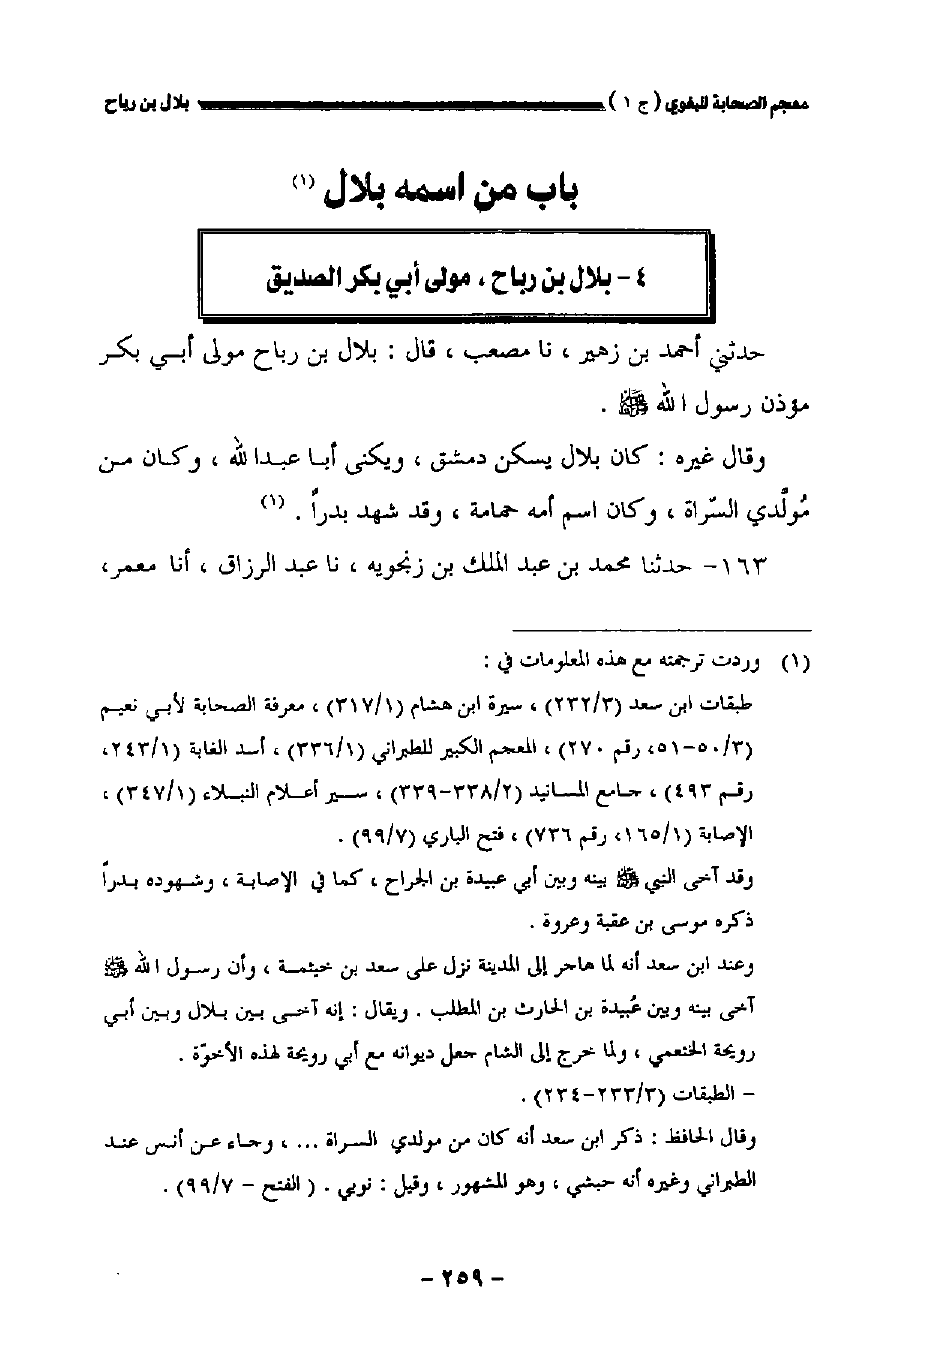 معجم الصحابة للبغوي ( ج ١ ) بلال بن رباح
باب من اسمه بلال (١)
٤ - بلال بن رباح ، مولى أبي بكر الصديق
حدثني أحمد بن زهير ، نا مصعب ، قال : بلال بن رباح مولى أبي بكر
مؤذن رسول الله ﷺ .
وقال غيره : كان بلال يسكن دمشق ، ويكنى أبا عبدالله ، وكان من
مُولَّدي السَّراة ، وكان اسم أمه حمامة ، وقد شهد بدراً . (١)
١٦٣- حدثنا محمد بن عبد الملك بن زنجويه ، نا عبد الرزاق ، أنا معمر،
(١) وردت ترجمته مع هذه المعلومات في :
طبقات ابن سعد (٢٣٢/٣) ، سيرة ابن هشام (٣١٧/١) ، معرفة الصحابة لأبي نعيم
(٥٠/٣-٥١، رقم ٢٧٠) ، المعجم الكبير للطبراني (٣٣٦/١) ، أسد الغابة (٢٤٣/١،
رقم ٤٩٣) ، جامع المسانيد (٣٣٨/٢-٣٣٩) ، سير أعلام النبلاء (٣٤٧/١) ،
الإصابة (١٦٥/١، رقم ٧٣٦) ، فتح الباري (٩٩/٧) .
وقد آخى النبي ﷺ بينه وبين أبي عبيدة بن الجراح ، كما في الإصابة ، وشهوده بدراً
ذكره موسى بن عقبة وعروة .
وعند ابن سعد أنه لما هاجر إلى المدينة نزل على سعد بن خيثمة ، وأن رسول الله ﷺ
آخى بينه وبين عُبيدة بن الحارث بن المطلب . ويقال : إنه آخى بين بلال وبين أبي
رويحة الخثعمي ، ولما خرج إلى الشام جعل ديوانه مع أبي رويحة لهذه الأخوّة .
- الطبقات (٢٣٣/٣-٢٣٤) .
وقال الحافظ : ذكر ابن سعد أنه كان من مولدي السراة ... ، وجاء عن أنس عند
الطبراني وغيره أنه حبشي ، وهو المشهور ، وقيل : نوبي . ( الفتح - ٩٩/٧) .
- ٢٥٩ -